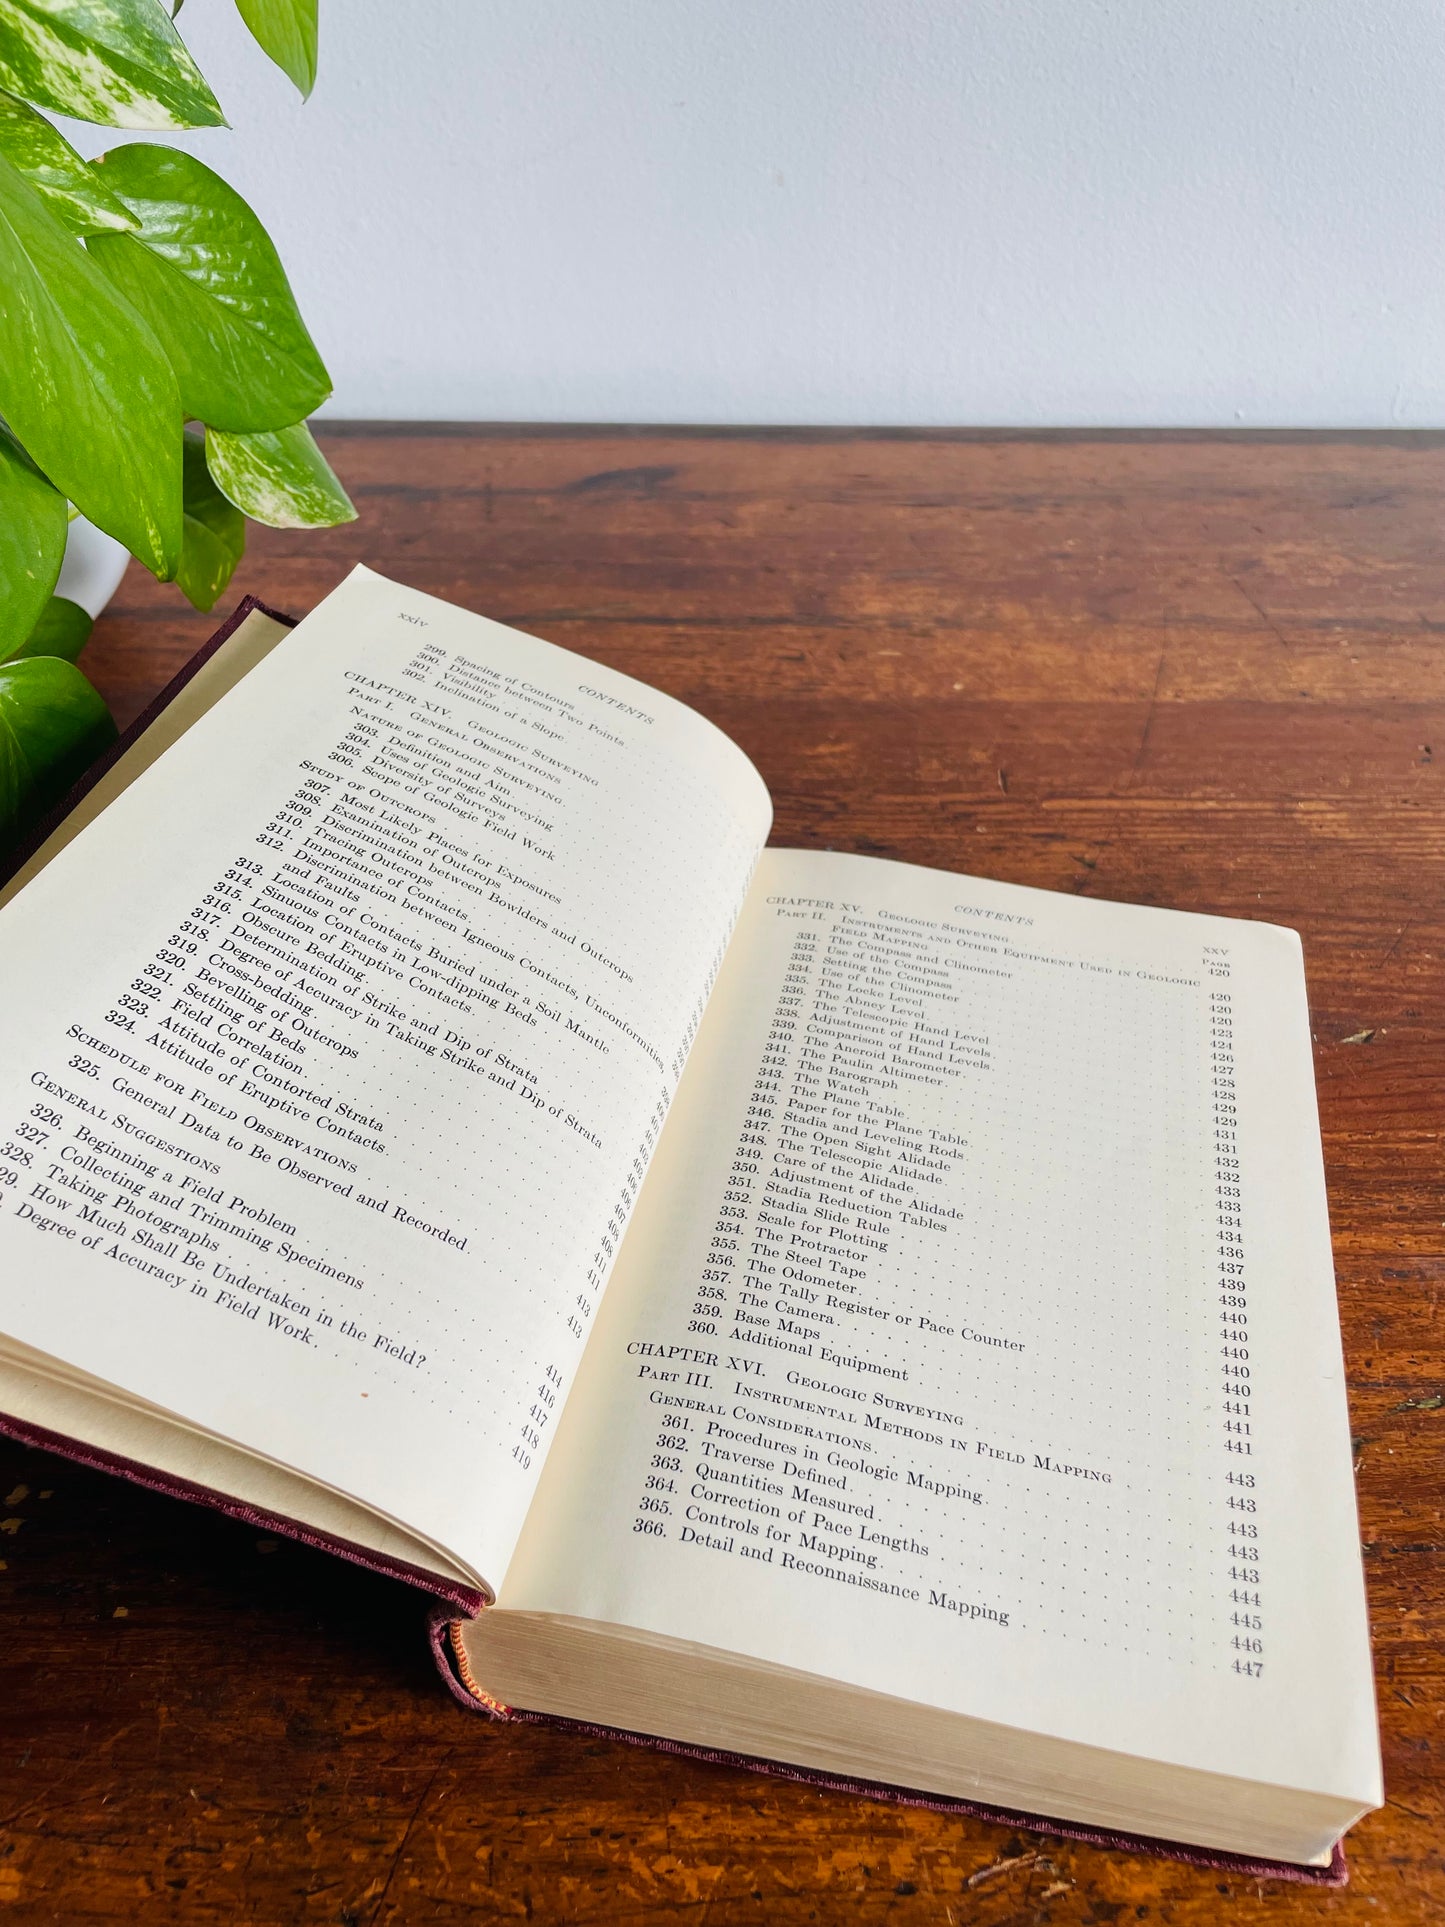 xxiv
CONTENTS
299. Spacing of Contours
300. Distance between Two Points
301. Visibility
302. Inclination of a Slope
CHAPTER XIV. GEOLOGIC SURVEYING
PART I. GENERAL OBSERVATIONS
NATURE OF GEOLOGIC SURVEYING
303. Definition and Aim
304. Uses of Geologic Surveying
305. Diversity of Surveys
306. Scope of Geologic Field Work
STUDY OF OUTCROPS
307. Most Likely Places for Exposures
308. Examination of Outcrops
309. Discrimination between Bowlders and Outcrops
310. Tracing Outcrops
311. Importance of Contacts
312. Discrimination between Igneous Contacts, Unconformities,
and Faults
313. Location of Contacts Buried under a Soil Mantle
314. Sinuous Contacts in Low-dipping Beds
315. Location of Eruptive Contacts
316. Obscure Bedding
317. Determination of Strike and Dip of Strata
318. Degree of Accuracy in Taking Strike and Dip of Strata
319. Cross-bedding
320. Bevelling of Outcrops
321. Settling of Beds 407
322. Field Correlation 408
323. Attitude of Contorted Strata 408
324. Attitude of Eruptive Contacts 411
SCHEDULE FOR FIELD OBSERVATIONS 411
325. General Data to Be Observed and Recorded 413
GENERAL SUGGESTIONS 413
326. Beginning a Field Problem 414
327. Collecting and Trimming Specimens 416
328. Taking Photographs 417
29. How Much Shall Be Undertaken in the Field? 418
Degree of Accuracy in Field Work 419
CONTENTS
xxv
PAGE
CHAPTER XV. GEOLOGIC SURVEYING 420
PART II. INSTRUMENTS AND OTHER EQUIPMENT USED IN GEOLOGIC
FIELD MAPPING 420
331. The Compass and Clinometer 420
332. Use of the Compass 420
333. Setting the Compass 423
334. Use of the Clinometer 424
335. The Locke Level 426
336. The Abney Level 427
337. The Telescopic Hand Level 428
338. Adjustment of Hand Levels 428
339. Comparison of Hand Levels 429
340. The Aneroid Barometer 429
341. The Paulin Altimeter 431
342. The Barograph 431
343. The Watch 432
344. The Plane Table 432
345. Paper for the Plane Table 433
346. Stadia and Leveling Rods 433
347. The Open Sight Alidade 434
348. The Telescopic Alidade 434
349. Care of the Alidade 436
350. Adjustment of the Alidade 437
351. Stadia Reduction Tables 439
352. Stadia Slide Rule 439
353. Scale for Plotting 440
354. The Protractor 440
355. The Steel Tape 440
356. The Odometer 440
357. The Tally Register or Pace Counter 440
358. The Camera 441
359. Base Maps 441
360. Additional Equipment 441
CHAPTER XVI. GEOLOGIC SURVEYING 443
PART III. INSTRUMENTAL METHODS IN FIELD MAPPING 443
GENERAL CONSIDERATIONS 443
361. Procedures in Geologic Mapping 443
362. Traverse Defined 443
363. Quantities Measured 444
364. Correction of Pace Lengths 445
365. Controls for Mapping 446
366. Detail and Reconnaissance Mapping 447